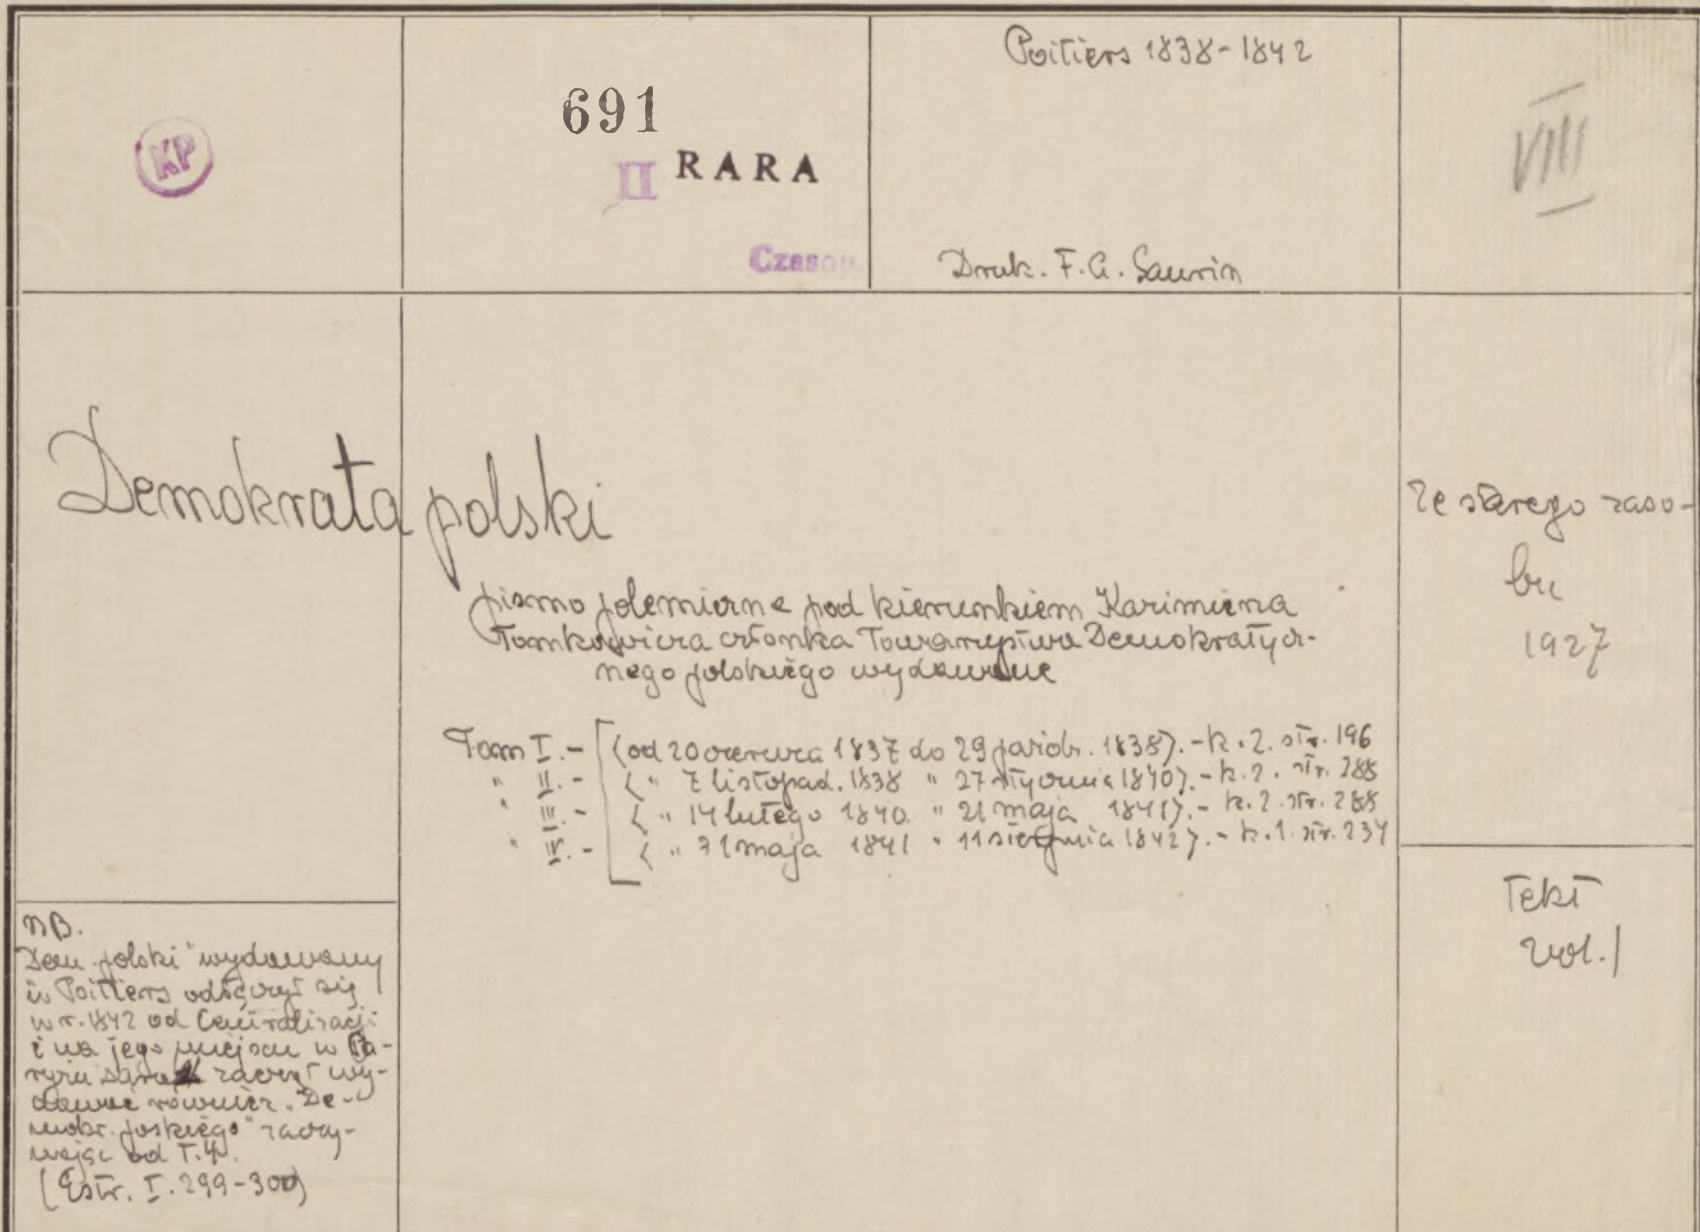 KP
691
II RARA
Czasop.
Poitiers 1838-1842
Druk. F. A. Saurin
VIII
Demokrata polski
pismo polemiczne pod kierunkiem Kazimierza
Tomkowicza członka Towarzystwa Demokratycz-
nego polskiego wydawane
Tom I.- [(od 20 czerwca 1837 do 29 paźdz. 1838).- k. 2. str. 196
" II.- (" 7 listopad. 1838 " 27 stycznia 1840).- k. 2. str. 288
" III.- (" 14 lutego 1840 " 21 maja 1841).- k. 2. str. 288
" IV.- (" 31 maja 1841 " 11 sierpnia 1842).- k. 1. str. 234
Ze starego zaso-
bu
1927
Tekt
vol. 1
NB.
Dem. polski" wydawany
w Poitiers odłączył się
w r. 1842 od Centralizacji
i na jego miejscu w Pa-
ryżu zaczął wy-
dawać również "De-
mokr. poskiego" zaczy-
nając od T. 4.
(Estr. I. 299-300)